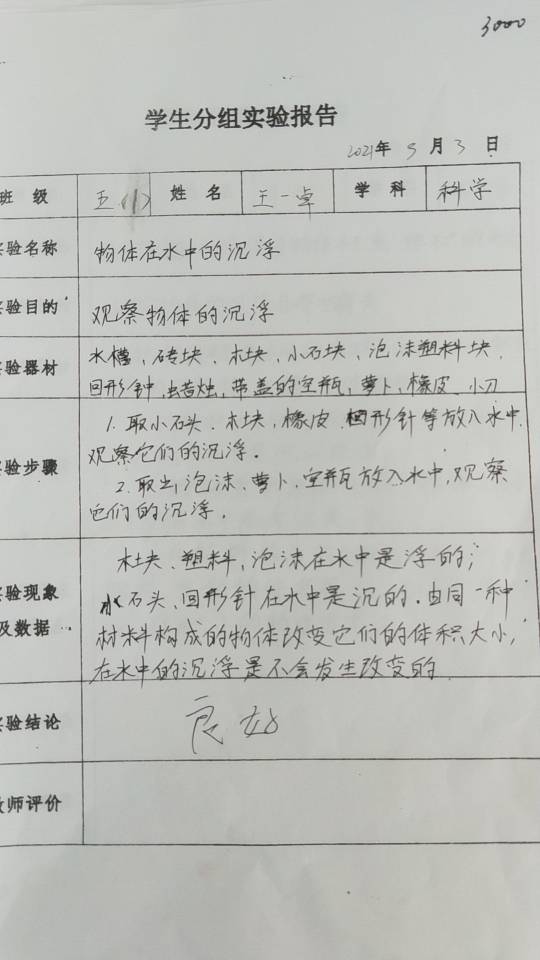 3000
学生分组实验报告
2021年 9月 3日
班 级 五(1) 姓 名 王一卓 学 科 科学
实验名称 物体在水中的沉浮
实验目的 观察物体的沉浮
实验器材 水槽、砖块、木块、小石块、泡沫塑料块、
回形钟,蜡烛,带盖的空瓶,萝卜、橡皮、小刀
实验步骤 1. 取小石头、木块,橡皮、回形针等放入水中,
观察它们的沉浮。
2. 取出泡沫、萝卜、空瓶放入水中,观察
它们的沉浮。
实验现象及数据 木块、塑料,泡沫在水中是浮的;
石头、回形针在水中是沉的。由同一种
材料构成的物体改变它们的体积大小,
在水中的沉浮是不会发生改变的
实验结论 良好
教师评价